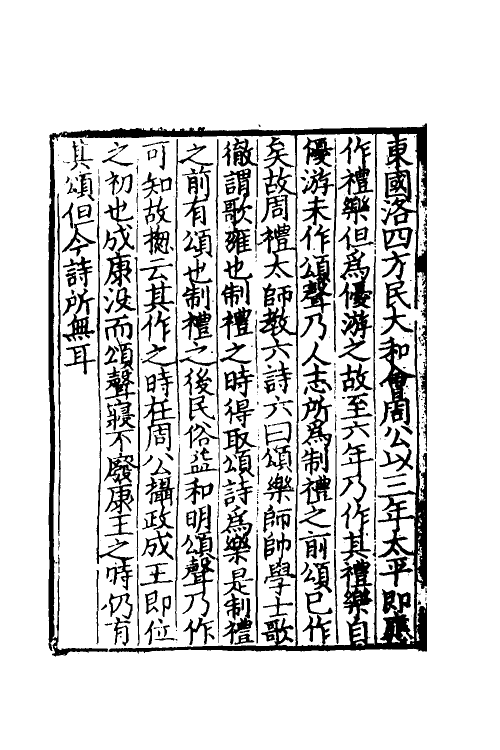 東國洛四方民大和會周公以三年太平即應
作禮樂但為優游之故至六年乃作其禮樂自
優游未作頌聲乃人志所為制禮之前頌已作
矣故周禮太師教六詩六曰頌樂師帥學士歌
徹謂歌雍也制禮之時得取頌詩為樂是制禮
之前有頌也制禮之後民俗益和明頌聲乃作
可知故揔云其作之時在周公攝政成王即位
之初也成康沒而頌聲寢不廢康王之時仍有
其頌但今詩所無耳